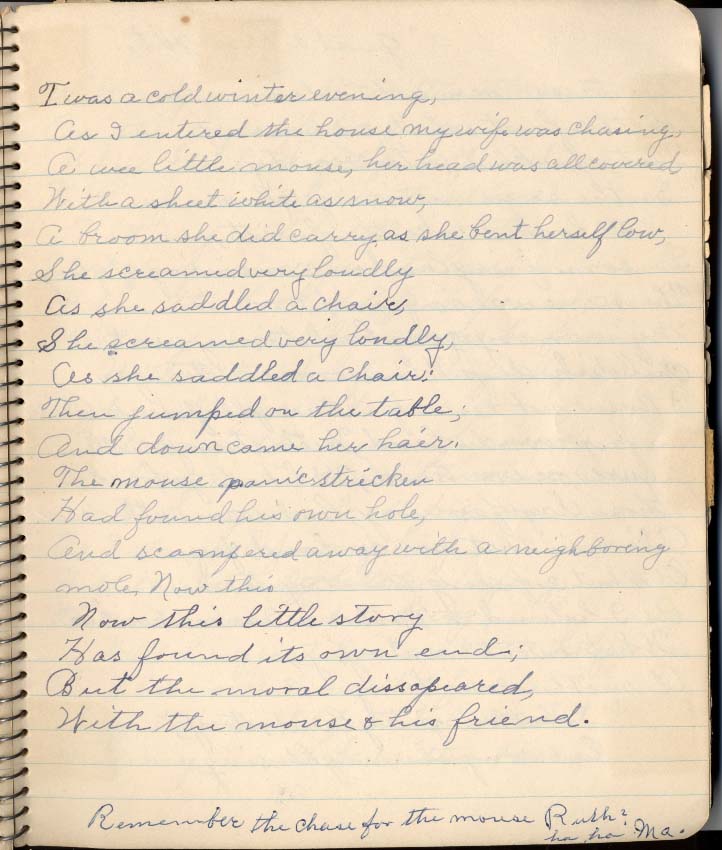 T was a cold winter evening,
As I entered the house my wife was chasing,
A wee little mouse, her head was all covered
With a sheet white as snow,
A broom she did carry, as she bent herself low,
She screamed very loudly
As she saddled a chair,
She screamed very loudly,
As she saddled a chair;
Then jumped on the table;
And down came her hair.
The mouse panic stricken
Had found his own hole,
And scampered away with a neighboring
mole, Now this
Now this little story
Has found its own end;
But the moral dissapeared,
With the mouse & his friend.
Remember the chase for the mouse Ruth?
ha, ha Ma.